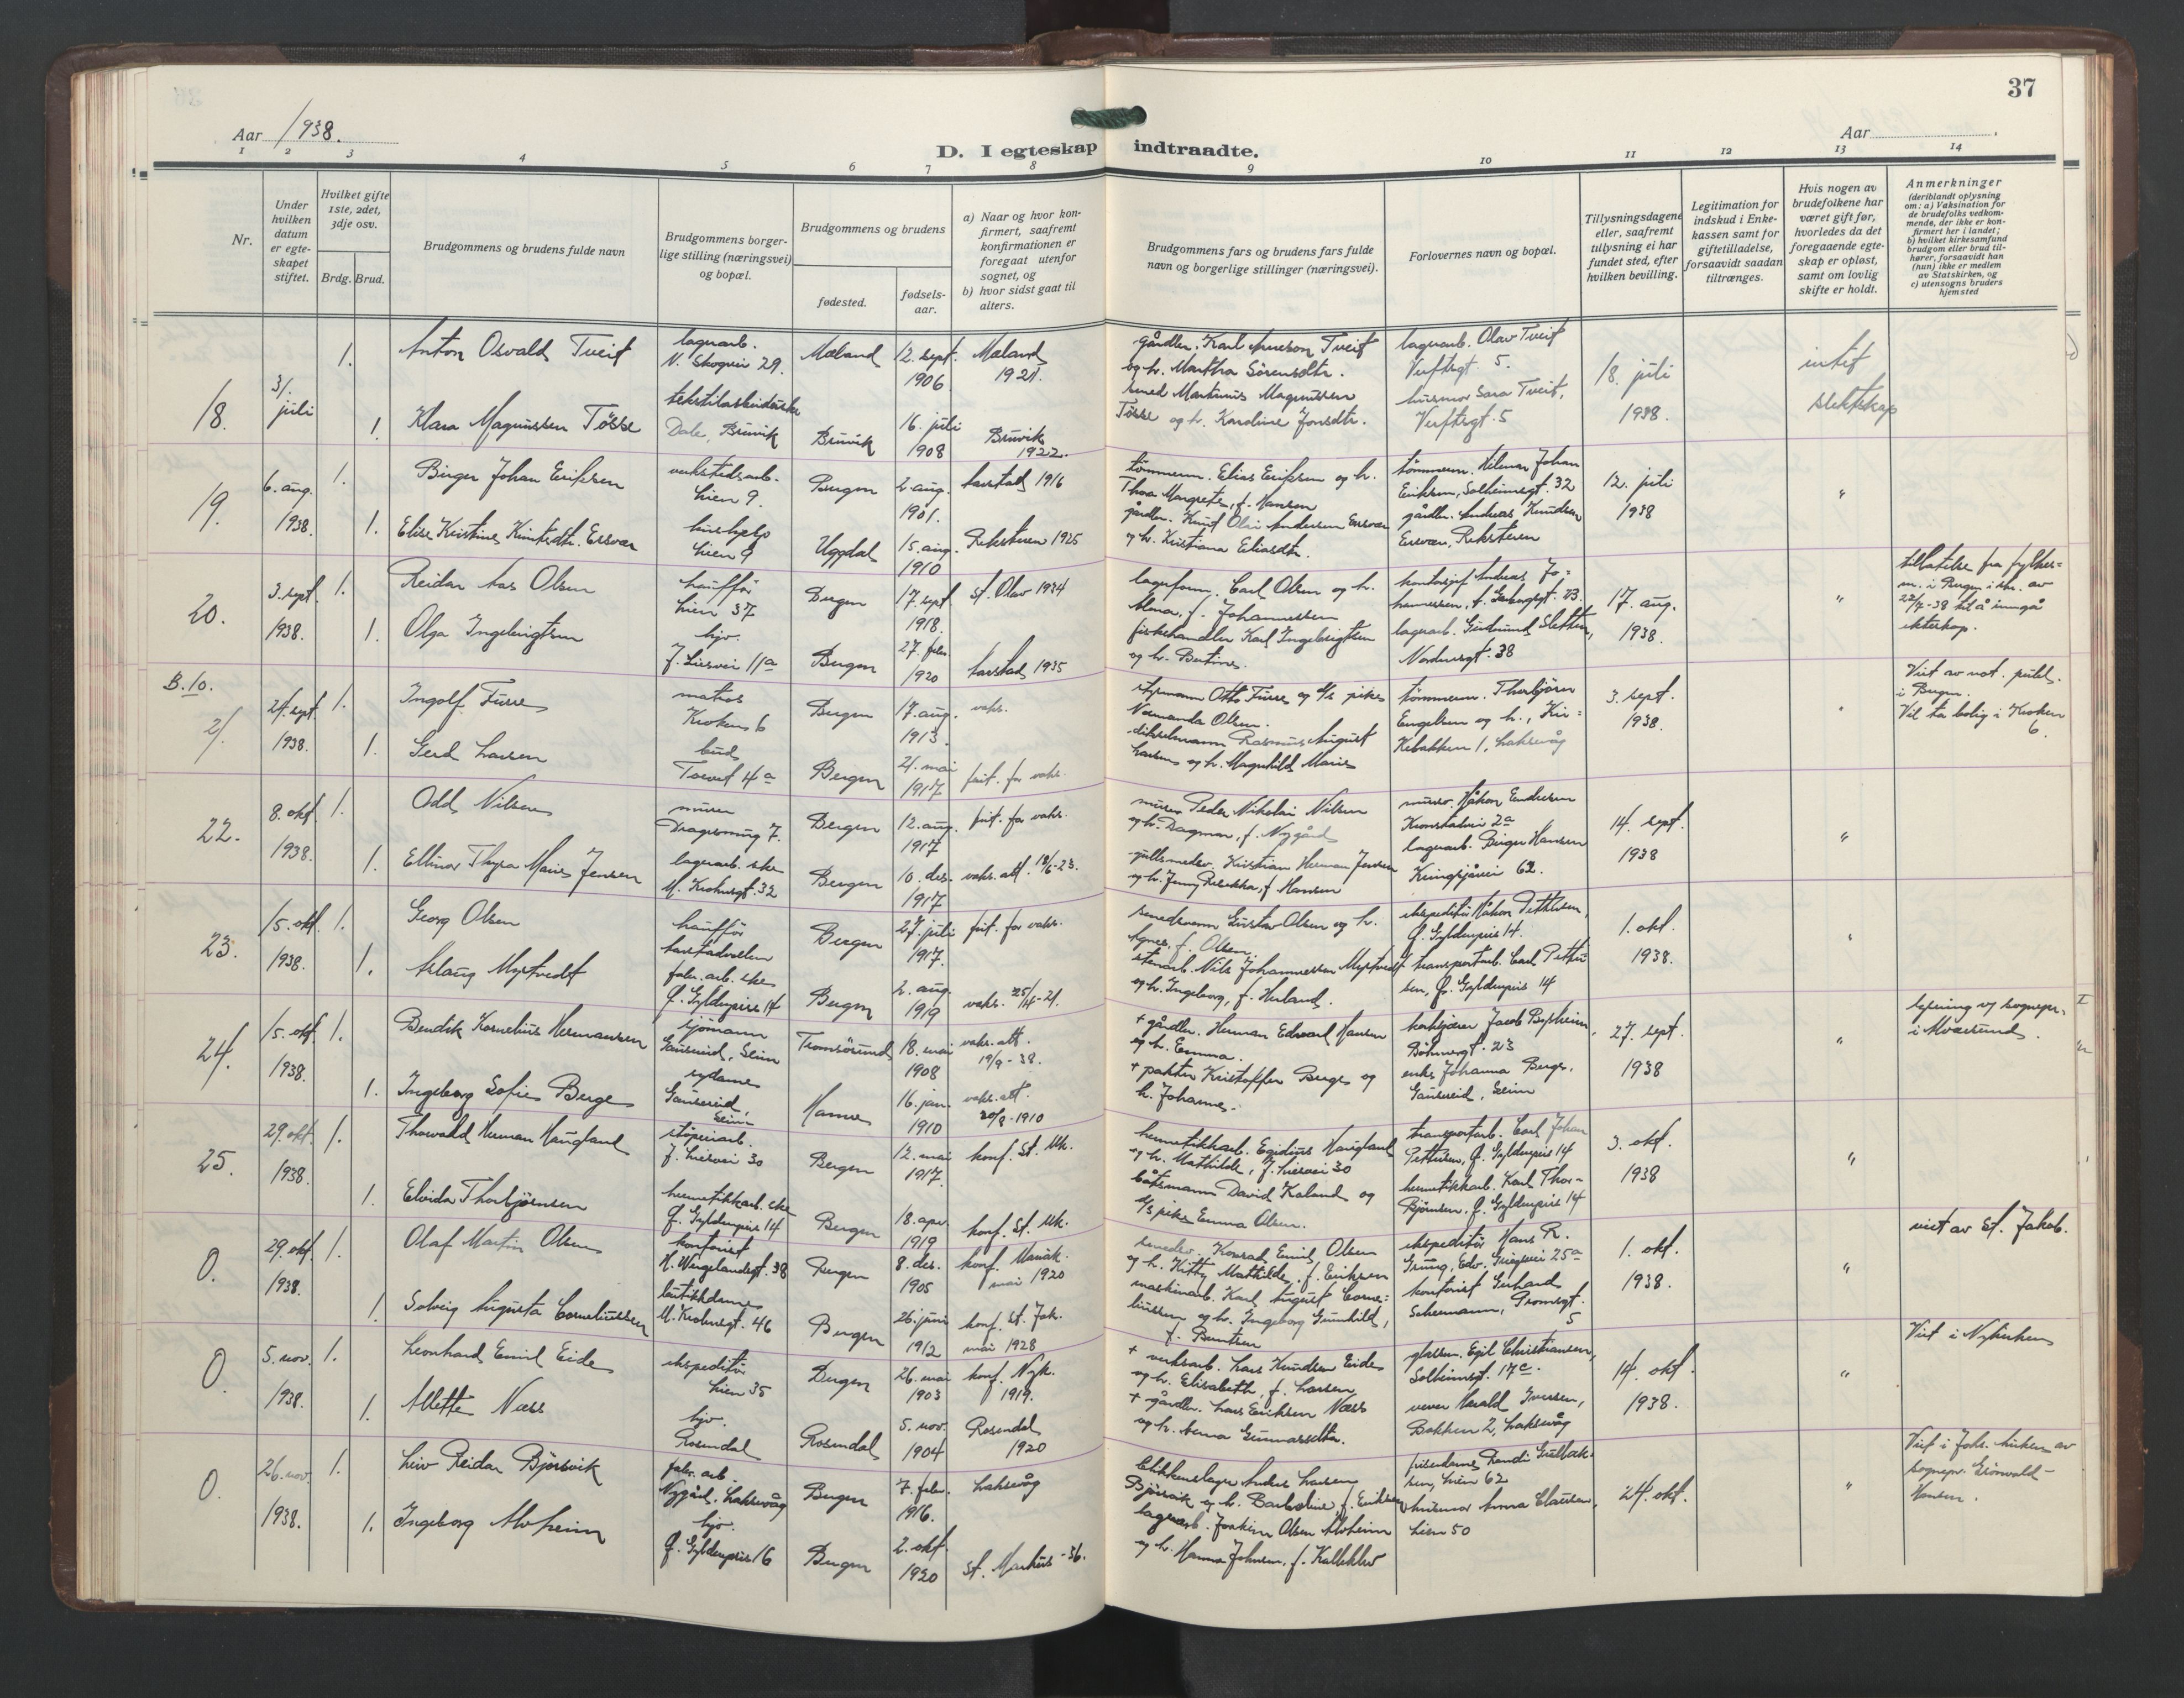 37
Aar 1938.
Aar
D. I egteskap indtraadte.
1 2 3 4 5 6 7 8 9 10 11 12 13 14
Nr.
Under hvilken datum er egteskapet stiftet.
Hvilket gifte 1ste, 2det, 3dje osv.
Brdg. Brud.
Brudgommens og brudens fulde navn
Brudgommens borgerlige stilling (næringsvei) og bopæl.
Brudgommens og brudens
fødested.
fødselsaar.
a) Naar og hvor konfirmert, saafremt konfirmationen er foregaat utenfor sognet, og
b) hvor sidst gaat til alters.
Brudgommens fars og brudens fars fulde navn og borgerlige stillinger (næringsvei).
Forlovernes navn og bopæl.
Tillysningsdagene eller, saafremt tillysning ei har fundet sted, efter hvilken bevilling.
Legitimation for indskud i Enkekassen samt for giftetilladelse, forsaavidt saadan tiltrænges.
Hvis nogen av brudefolkene har været gift før, hvorledes da det foregaaende egteskap er opløst, samt om lovlig skifte er holdt.
Anmerkninger
(deriblandt oplysning om: a) Vaksination for de brudefolks vedkommende, der ikke er konfirmert her i landet; b) hvilket kirkesamfund brudgom eller brud tilhører, forsaavidt han (hun) ikke er medlem av Statskirken, og c) utensogns bruders hjemsted
18. juli
1. Anton Osvald Tveit
lagerarb.
N. Skogvei 29.
Mæland
12. sept. 1906
Mæland 1921.
gårdbr. Karl
Tveit
og h. Martha Sørensdtr.
lagerarb. Olav Tveit
Verftsgt. 5.
18. juli 1938.
intet slektskap
1. Klara Magnussen Tøsse
Dale, Bruvik
Bruvik
16. juli 1908
Bruvik 1922.
Martinus Magnussen
Tøsse og h. Karoline Jonsdtr.
husmor Sara Tveit,
Verftsgt. 5
19. 6. aug. 1938.
1. Birger Johan Eriksen
verkstedsarb.
Lien 9.
Bergen
2. aug. 1901.
Årstad 1916
tømmerm. Elias Eriksen og h.
Thea Margrete, f. Hansen
tømmerm. Hilmar Johan
Eriksen, Solheimsgt. 32
12. juli 1938
"
1. Elise Kristine Knutsdtr. Ersvær
hushjelp
Lien 9
Uggdal
15. aug. 1910
Reksteren 1925
gårdbr. Knut
Andersen Ersvær
og h. Kristiana Eliasdtr.
gårdbr. Andreas Knudsen
Ersvær, Reksteren
20. 3. sept. 1938.
1. Reidar Aas Olsen
chauffør
Lien 37
Bergen
17. sept. 1918.
St. Olav 1934
Carl Olsen og h.
f. Johannessen
Andreas Johannessen,
17. aug. 1938.
"
tillatelse fra fylkesm. i Bergen
til å inngå
ekteskap.
1. Olga Ingebrigtsen
hjv.
J. Liesvei 11a
Bergen
27. febr. 1920
Årstad 1935
fiskehandler Karl Ingebrigtsen
og h. Bertine.
lagerarb. Gudmund Sletten,
38
B. 10.
21. 24. sept. 1938.
1. Ingolf Furre
matros
Kroken 6
Bergen
17. aug. 1913.
vaks.
styrmann Otto Furre og d/s pike
Normanda Olsen.
tømmerm. Thorbjørn
Engelsen og h.,
Kirkebakken 1, Laksevåg
3. sept. 1938.
Viet av not. publ.
i Bergen.
Vil ta bolig i Kroken 6.
1. Gerd Larsen
bud
Torvet 4a
Bergen
21. mai 1917
frit. for vaks.
Rasmus August
Larsen og h. Magnhild Marie
22. 8. okt. 1938.
1. Odd Nilsen
murer
7.
Bergen
12. aug. 1917
frit. for vaks.
murer Peder Nikolai Nilsen
og h. Dagmar, f. Nygård
murer. Håkon Endresen
2a
14. sept. 1938
"
1. Ellinor Thyra Marie Jensen
lagerarb.ske
M. Krohnsgt. 32
Bergen
10. des. 1917
vaks. att.
gullsmedsv. Kristian Herman Jensen
og h. Jenny Rebekka, f. Hansen
lagerarb. Birger Hansen
62.
23. 15. okt. 1938.
1. Georg Olsen
chauffør
Årstadvollen
Bergen
27. juli 1917.
frit. for vaks.
Gustav Olsen og h.
Agnes, f. Olsen
ekspeditør Håkon Pettersen,
G. Gyldenpris 14.
1. okt. 1938.
1. Aslaug Myrtvedt
fabr.arb.ske
G. Gyldenpris 14
Bergen
2. aug. 1919
vaks.
stenarb. Nils Johannessen Myrtvedt
og h. Ingeborg, f. Herland.
transportarb. Carl Pettersen,
G. Gyldenpris 14
24. 15. okt. 1938.
1. Bendik Kornelius Hermansen
sjømann
Seim
Tromsøsund
18. mai 1908
vaks. att. 19/9-38.
+ gårdbr. Herman Edvard Hansen
og h. Emma.
Jacob
23
27. sept. 1938
"
lysning v/ sognepr.
i Alversund.
1. Ingeborg Sofie Berge
sydame
Seim
Hamre
16. jan. 1910
vaks.att. 1910
+ pakter Kristoffer Berge og
h. Johanne.
enke Johanna Berge,
Seim
25. 29. okt. 1938.
1. Thorvald Herman Haugland
støperiarb.
J. Liesvei 30
Bergen
12. mai 1917.
konf. St. Mk.
hermetikkarb. Egidius Haugland
og h. Mathilde, J. Liesvei 30
transportarb. Carl Johan
Pettersen, G. Gyldenpris 14
3. okt. 1938
"
1. Elvida Thorbjørnsen
hermetikkarb.ske
G. Gyldenpris 14
Bergen
18. apr. 1919
konf. St. Mk.
båtsmann David Kaland og
d/s pike Emma Olsen.
hermetikkarb. Karl Thorbjørnsen,
G. Gyldenpris 14
0. 29. okt. 1938.
1. Olaf Martin Olsen
kontorist
H. Wergelandsgt. 38
Bergen
8. des. 1905
konf.
mai 1920
Konrad Emil Olsen
og h. Kitty Mathilde, f. Eriksen
ekspeditør Hans R.
Grung, Edv. Griegsvei 25a
1. okt. 1938.
"
viet av St. Jakob.
1. Solveig Augusta Corneliussen
butikkdame
M. Krohnsgt. 46
Bergen
26. juni 1912
konf. St. Jak.
mai 1928
maskinarb. Karl August Corneliussen
og h. Ingeborg Gunhild,
f. Berntsen
kontorist Gerhard
5
0. 5. nov. 1938.
1. Leonhard Emil Eide
ekspeditør
Lien 35
Bergen
26. mai 1903
konf. Nyk. 1919.
+ verksarb. Lars Knudsen Eide
og h. Elisabeth, f. Larsen
Egil Christiansen,
Solheimsgt. 17c.
14. okt. 1938.
"
Viet i Nykirken
1. Alette Næss
hjv.
Rosendal
Rosendal
5. nov. 1904
Rosendal 1920
+ gårdbr. Lars Eriksen Næss
og h. Anna Gunnarsdtr.
Harald Iversen,
Bakken 2, Laksevåg
0. 26. nov. 1938.
1. Leiv Reidar Bjørsvik
fabr. arb
Nygård, Laksevåg
Bergen
7. febr. 1916.
Laksevåg
blikkenslager Anders Larsen
Bjørsvik og h. Barboline f. Eriksen
frisørdame Randi Gulbaksen,
Lien 62
24. okt.
"
Viet i Joh. kirken av
sognepr. Grönvold-
Hansen.
1. Ingeborg Alvheim
hjv.
G. Gyldenpris 16
Bergen
2. okt. 1920
St. Markus -36.
lagerarb. Joakim Olsen Alvheim
og h. Hanna Johnsen, f. Kalleklev
husmor Anna Clausen,
Lien 50